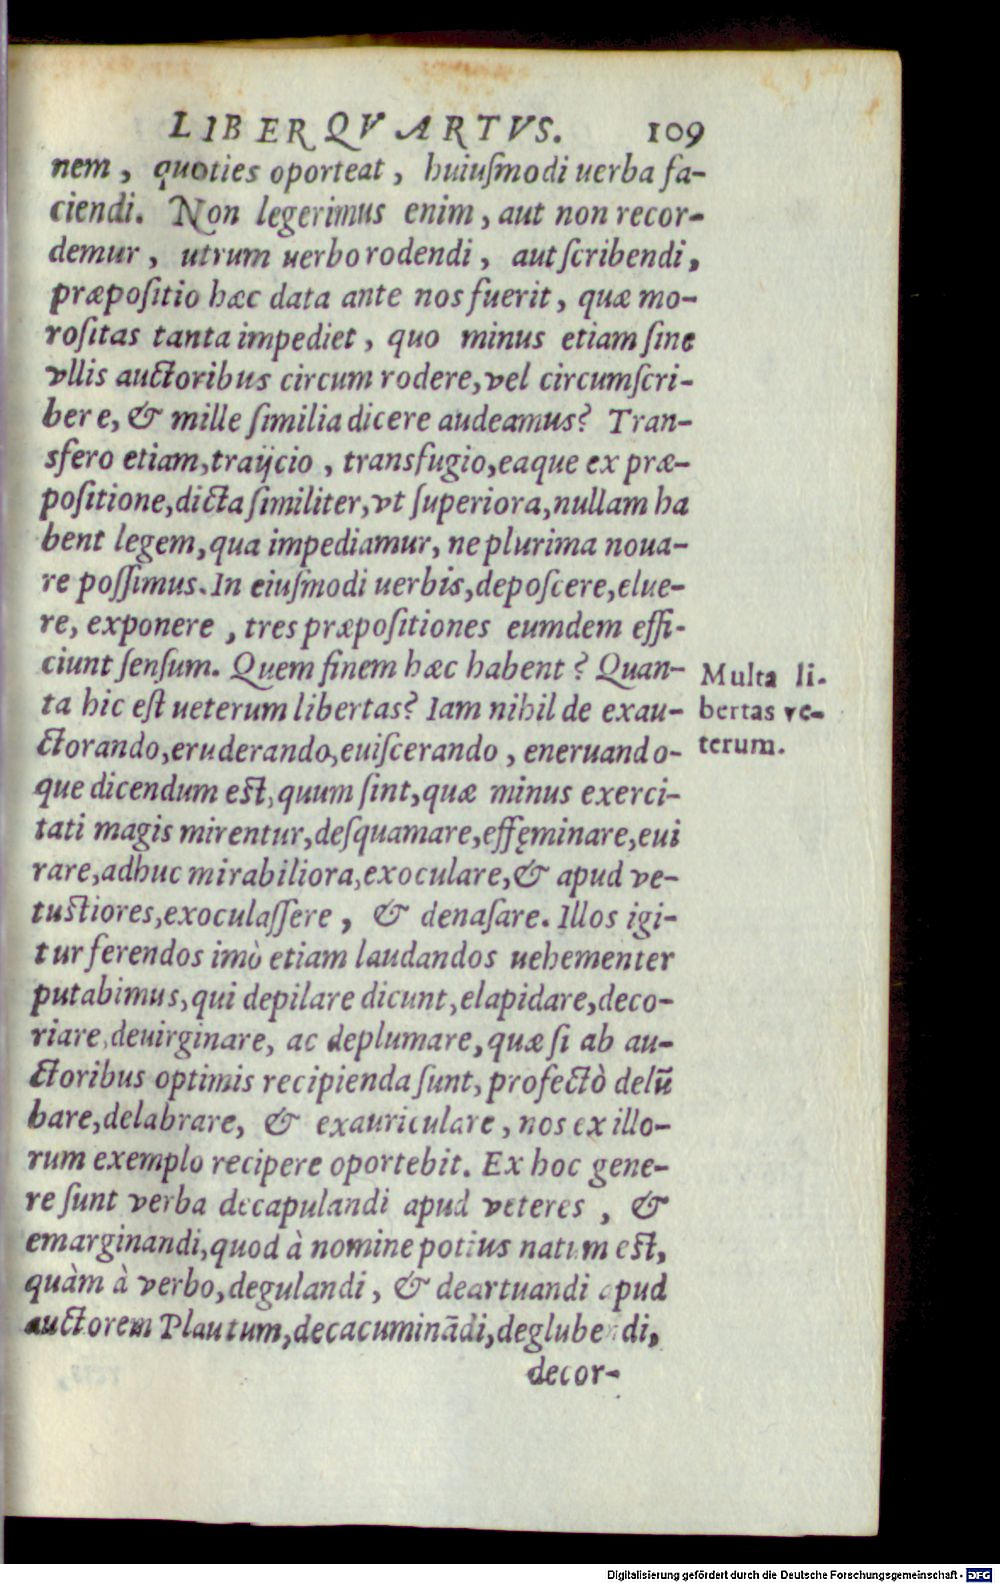 LIBER QVARTVS. 109
nem, quoties oporteat, huiuſmodi uerba fa-
ciendi. Non legerimus enim, aut non recor-
demur, utrum uerbo rodendi, aut ſcribendi,
præpoſitio hæc data ante nos fuerit, quæ mo-
roſitas tanta impediet, quo minus etiam ſine
vllis auctoribus circum rodere, vel circumſcri-
bere, & mille ſimilia dicere audeamus? Tran-
sfero etiam, traijcio, transfugio, eaque ex præ-
poſitione, dicta ſimiliter, vt ſuperiora, nullam ha
bent legem, qua impediamur, ne plurima noua-
re poſſimus. In eiuſmodi uerbis, depoſcere, elue-
re, exponere, tres præpoſitiones eumdem effi-
ciunt ſenſum. Quem finem hæc habent? Quan-
ta hic eſt ueterum libertas? Iam nihil de exau-
ctorando, eruderando, euiſcerando, eneruando-
que dicendum eſt, quum ſint, quæ minus exerci-
tati magis mirentur, deſquamare, effęminare, eui
rare, adhuc mirabiliora, exoculare, & apud ve-
tuſtiores, exoculaſſere, & denaſare. Illos igi-
tur ferendos imò etiam laudandos uehementer
putabimus, qui depilare dicunt, elapidare, deco-
riare, deuirginare, ac deplumare, quæ ſi ab au-
ctoribus optimis recipienda ſunt, profectò delū
bare, delabrare, & exauriculare, nos ex illo-
rum exemplo recipere oportebit. Ex hoc gene-
re ſunt verba decapulandi apud veteres, &
emarginandi, quod à nomine potius natum eſt,
quàm à verbo, degulandi, & deartuandi apud
auctorem Plautum, decacuminādi, deglubendi,
decor-
Multa li-
bertas ve-
terum.
Digitalisierung gefördert durch die Deutsche Forschungsgemeinschaft - DFG